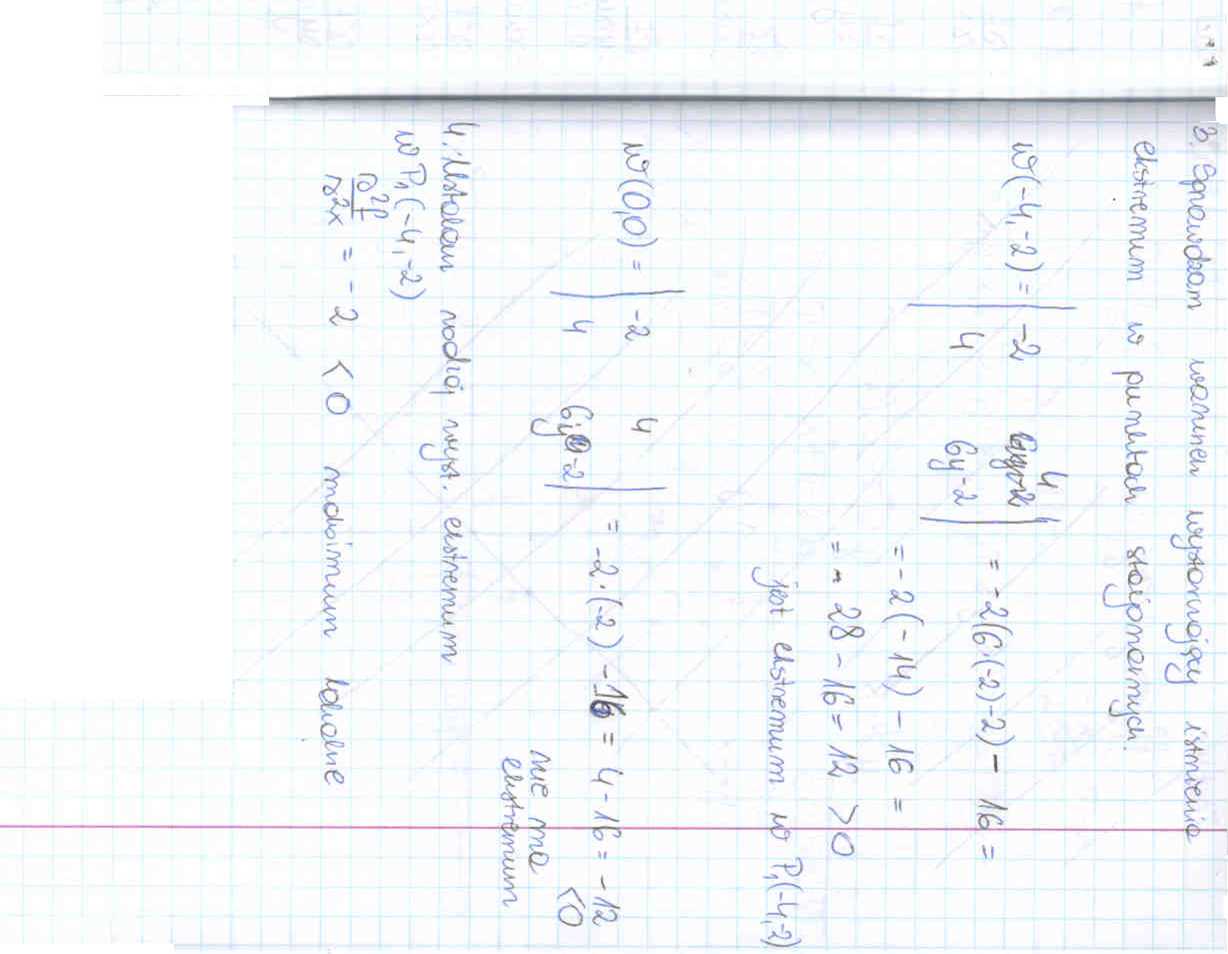 3. Sprawdzam warunek wystarczający istnienia
ekstremum w punktach stacjonarnych.
W(-4,-2) = | -2 4 |
| 4 6y-2 | = -2(6·(-2)-2) - 16 =
= -2(-14) - 16 =
= - 28 - 16 = 12 > 0
jest ekstremum w P₁(-4,-2)
W(0,0) = | -2 4 |
| 4 6y-2 | = -2·(-2) - 16 = 4 - 16 = -12 < 0
nie ma
ekstremum
4. Ustalam rodzaj wyst. ekstremum
w P₁(-4,-2)
∂²f/∂²x = -2 < 0 maksimum lokalne